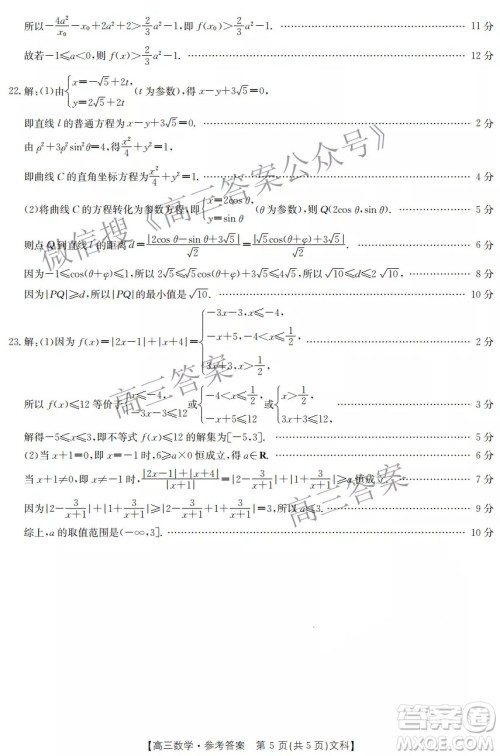 所以-4a²/x₀-x₀+2a²+2>2/3a²-1,即f(x)>2/3a²-1. 11分
故若-1≤a<0,则f(x)>2/3a²-1. 12分
22.解:(1)由{x=-√5+2t, y=2√5+2t (t为参数),得x-y+3√5=0,
即直线l的普通方程为x-y+3√5=0. 2分
由ρ²+3ρ²sin²θ=4,得x²/4+y²=1,
即曲线C的直角坐标方程为x²/4+y²=1. 4分
(2)将曲线C的方程转化为参数方程,即{x=2cosθ, y=sinθ 则Q(2cosθ,sinθ). 5分
则点Q到直线l的距离d=|2cosθ-sinθ+3√5|/√2=|√5cos(θ+φ)+3√5|/√2. 6分
因为-1≤cos(θ+φ)≤1,所以2√5≤√5cos(θ+φ)+3√5≤4√5,所以√10≤d≤2√10. 8分
因为|PQ|≥d,所以|PQ|的最小值是√10. 10分
23.解:(1)因为f(x)=|2x-1|+|x+4|={-3x-3,x≤-4, -x+5,-4<x≤1/2, 3x+3,x>1/2, 2分
所以f(x)≤12等价于{x≤-4 -3x-3≤12 或{-4<x≤1/2 -x+5≤12 或{x>1/2 3x+3≤12, 3分
解得-5≤x≤3,即不等式f(x)≤12的解集为[-5,3]. 5分
(2)当x+1=0,即x=-1时,6≥a×0恒成立,得a∈R. 6分
当x+1≠0,即x≠-1时,|2x-1|+|x+4|/|x+1|=|2-3/x+1|+|1+3/x+1|≥a恒成立. 7分
因为|2-3/x+1|+|1+3/x+1|≥|2-3/x+1+1+3/x+1|=3,所以a≤3. 9分
综上,a的取值范围是(-∞,3]. 10分
微信搜《高三答案公众号》
高三答案
高三答案
【高三数学·参考答案 第5页(共5页)文科】
答案圈
MXQE.COM